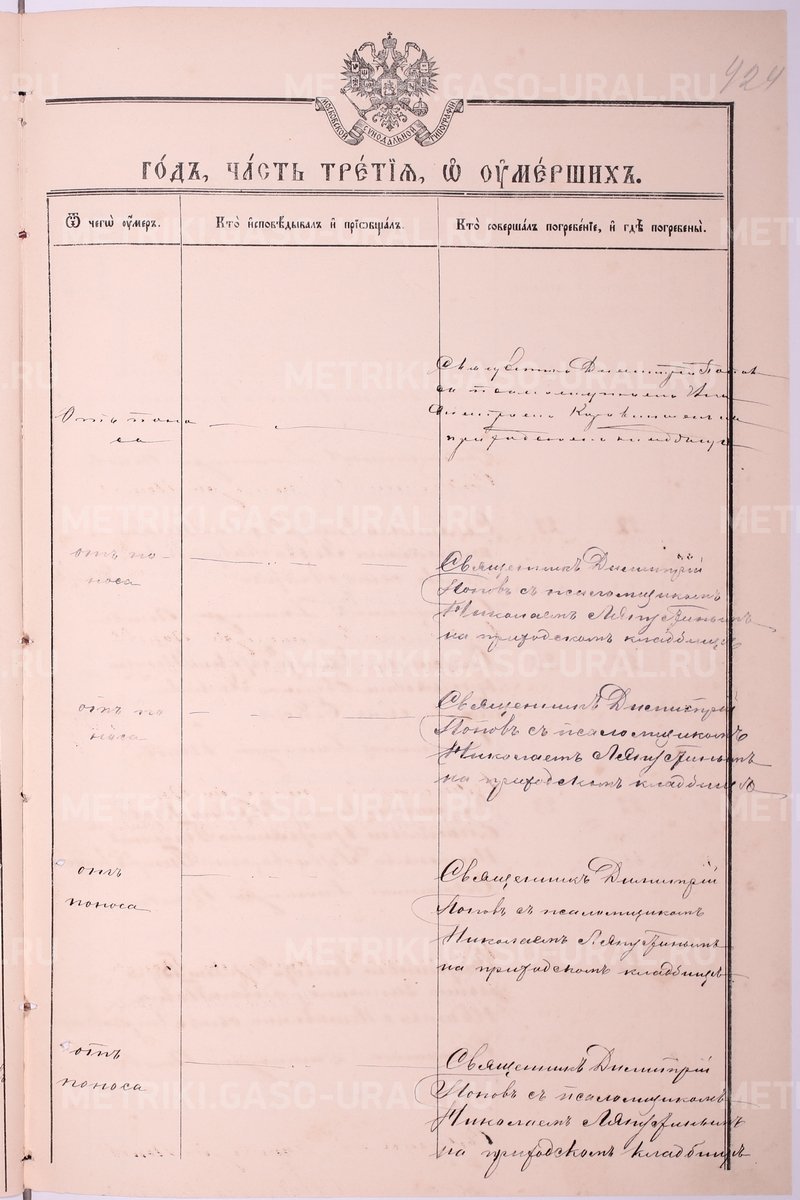 424
МОСКОВСКОЙ СѴНОДАЛЬНОЙ ТИПОГРАФІИ
ГО́ДЪ, ЧА́СТЬ ТРЕ́ТІѦ, Ѽ ОУ҆МЕ́РШИХЪ.
Ѿ чегѡ̀ оу҆́меръ.
Кто̀ и҆сповѣ́дывалъ и҆ прїѡбща́лъ.
Кто̀ соверша́лъ погребе́нїе, и҆ гдѣ̀ погребены̀.
Отъ поно
са
Священникъ Димитрій Поповъ
съ псаломщикомъ
на
приходскомъ кладбищѣ
отъ по-
носа
Священникъ Димитрій
Поповъ съ псаломщикомъ
Николаемъ Ляпустинымъ
на приходскомъ кладбищѣ
отъ по
носа
Священникъ Димитрій
Поповъ съ псаломщикомъ
Николаемъ Ляпустинымъ
на приходскомъ кладбищѣ
отъ
поноса
Священникъ Димитрій
Поповъ съ псаломщикомъ
Николаемъ Ляпустинымъ
на приходскомъ кладбищѣ
отъ
поноса
Священникъ Димитрій
Поповъ съ псаломщикомъ
Николаемъ Ляпустинымъ
на приходскомъ кладбищѣ
METRIKI.GASO-URAL.RU